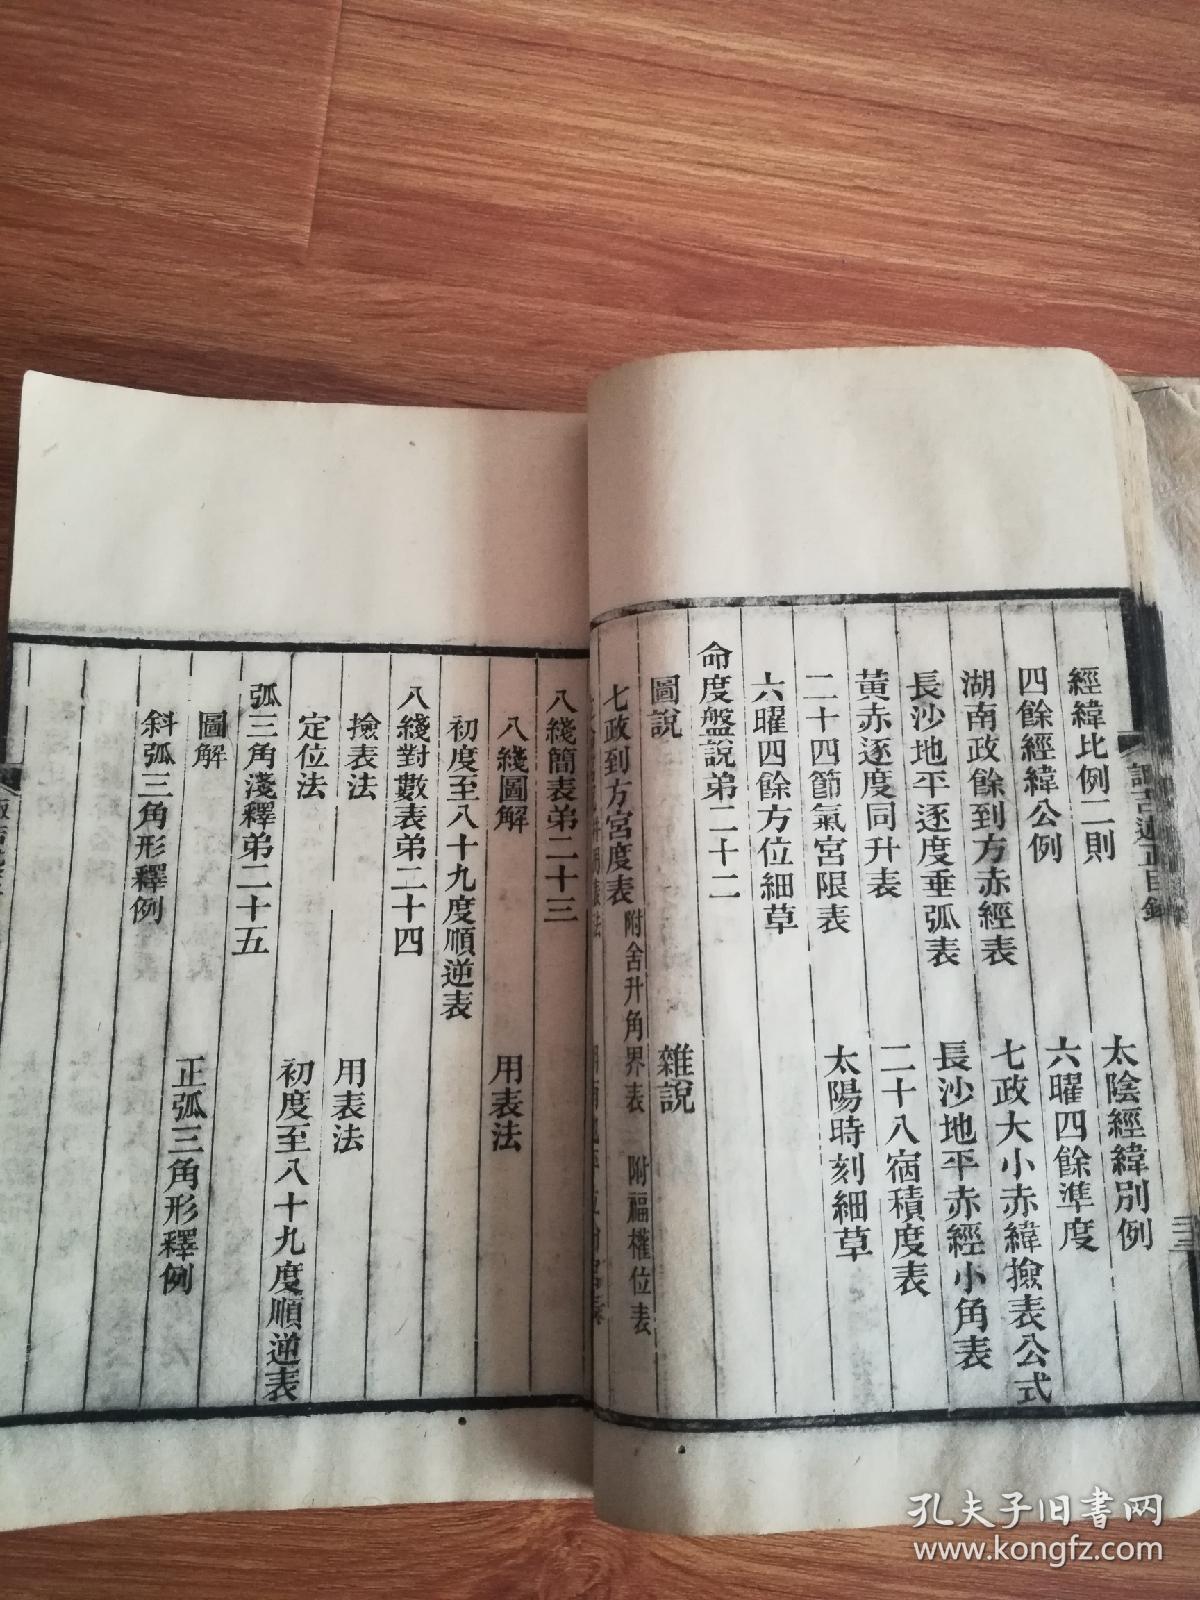 經緯比例二則　太陰經緯別例
四餘經緯公例　六曜四餘準度
湖南政餘到方赤經表　七政大小赤緯撿表公式
長沙地平逐度垂弧表　長沙地平赤經小角表
黃赤逐度同升表　二十八宿積度表
二十四節氣宮限表　太陽時刻細草
六曜四餘方位細草
命度盤說弟二十二
圖說　雜說
七政到方宮度表　附舍升角界表　附福權位表
八綫簡表弟二十三
八綫圖解　用表法
初度至八十九度順逆表
八綫對數表弟二十四
撿表法　用表法
定位法　初度至八十九度順逆表
弧三角淺釋弟二十五
圖解　正弧三角形釋例
斜弧三角形釋例
孔夫子旧书网
www.kongfz.com